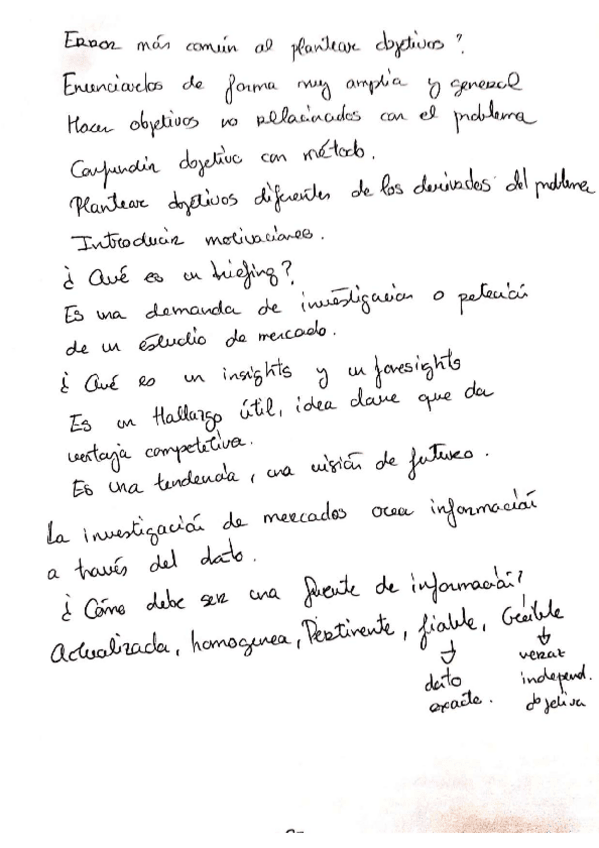 Error más común al plantear objetivos?
Enunciarlos de forma muy amplia y general
Hacer objetivos no relacionados con el problema
Confundir objetivo con método.
Plantear objetivos diferentes de los derivados del problema
Introducir motivaciones.
¿Qué es un briefing?
Es una demanda de investigación o petición
de un estudio de mercado.
¿Qué es un insights y un foresights
Es un Hallazgo útil, idea clave que da
ventaja competetiva.
Es una tendencia, una visión de futuro.
La investigación de mercados crea información
a través del dato.
¿Cómo debe ser una fuente de información?
Actualizada, homogenea, Pertinente, fiable, Creíble
↓ ↓
dato veraz
exacto. independ.
objetiva